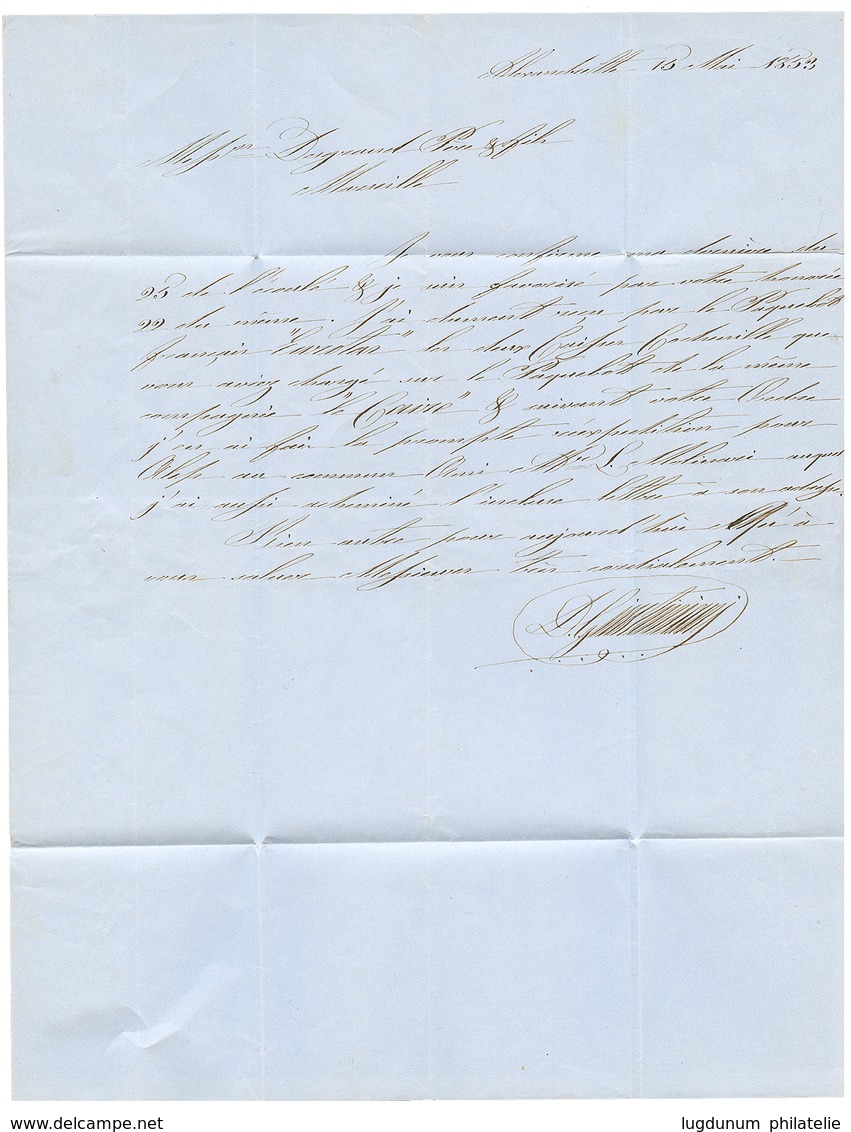 Alexandrette 15 Mai 1853
Messrs Dugrand Père & fils
Marseille
Je vous confirme ma dernière du
25 de l'écoulé & je suis favorisé par votre honorée
22 du même. J'ai dument reçu par le Paquebot
français "Eurotas" les deux Caisses Cochenille que
vous aviez chargé sur le Paquebot de la même
compagnie "le Caire" & suivant votre Ordre
j'en ai fait la prompte réexpédition pour
Alep au commun Ami Mr L. Molinari auquel
j'ai aussi acheminé l'incluse lettre à son adresse.
Rien autre pour aujourd'hui Qu'à
vous saluer Messieurs très cordialement.
www.delcampe.net
lugdunum philatelie